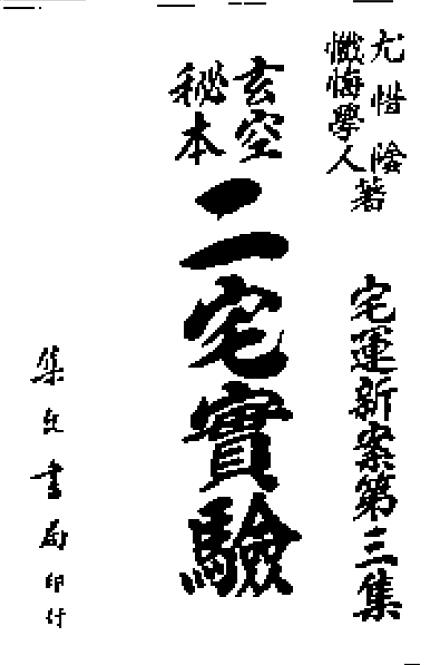 尤惜陰
懺悔學人
著
宅運新案第三集
玄空
秘本
二宅實驗
集文書局印行